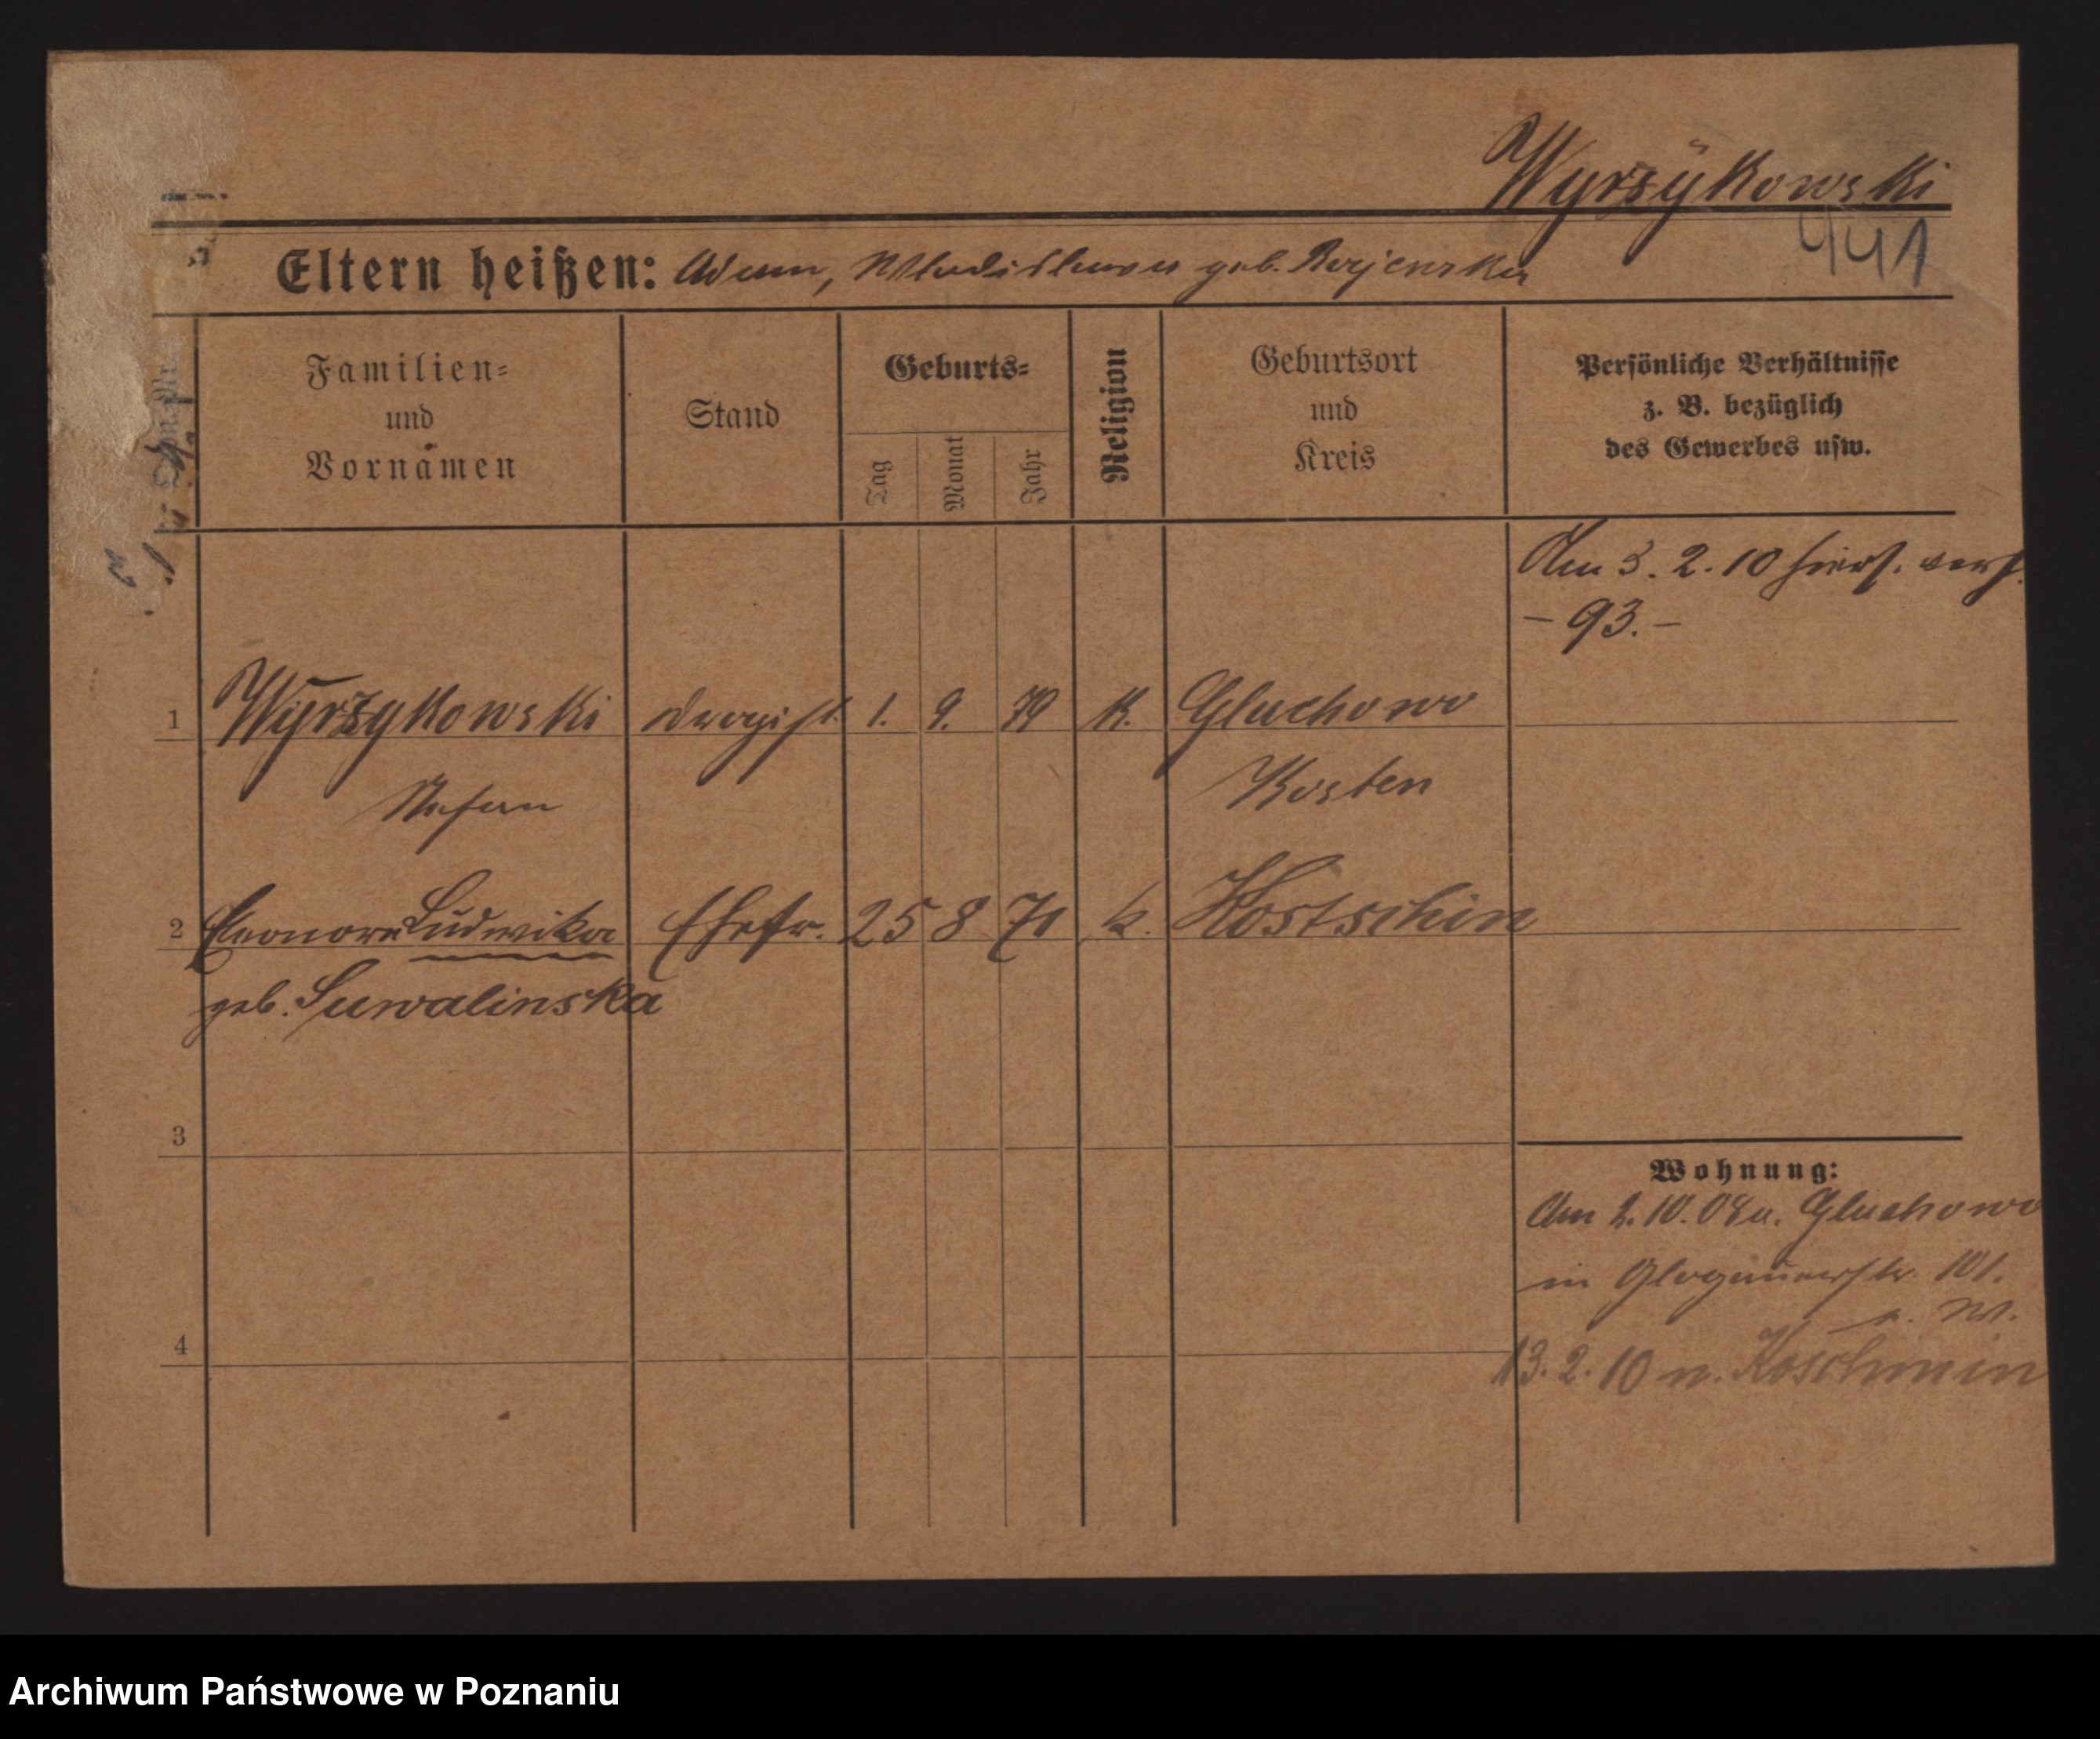 Wyrzykowski
441
Eltern heißen: Adam, Wladislawa geb.
Familien=
und
Vornamen
Stand
Geburts=
Tag
Monat
Jahr
Religion
Geburtsort
und
Kreis
Persönliche Verhältnisse
z. B. bezüglich
des Gewerbes usw.
Am 3. 2. 10 hiers. verh.
- 93. -
1 Wyrzykowski Drogist. 1. 9. 79 K. Gluchowo
Stefan Kosten
2 Eleonore Ludwika Ehefr. 25 8 71 k. Kostschin
geb. Suwalinska
3
Wohnung:
Am 2. 10. 08 a. Gluchowo
in Glogauerstr. 101.
4
13. 2. 10 n. Koschmin
Archiwum Państwowe w Poznaniu